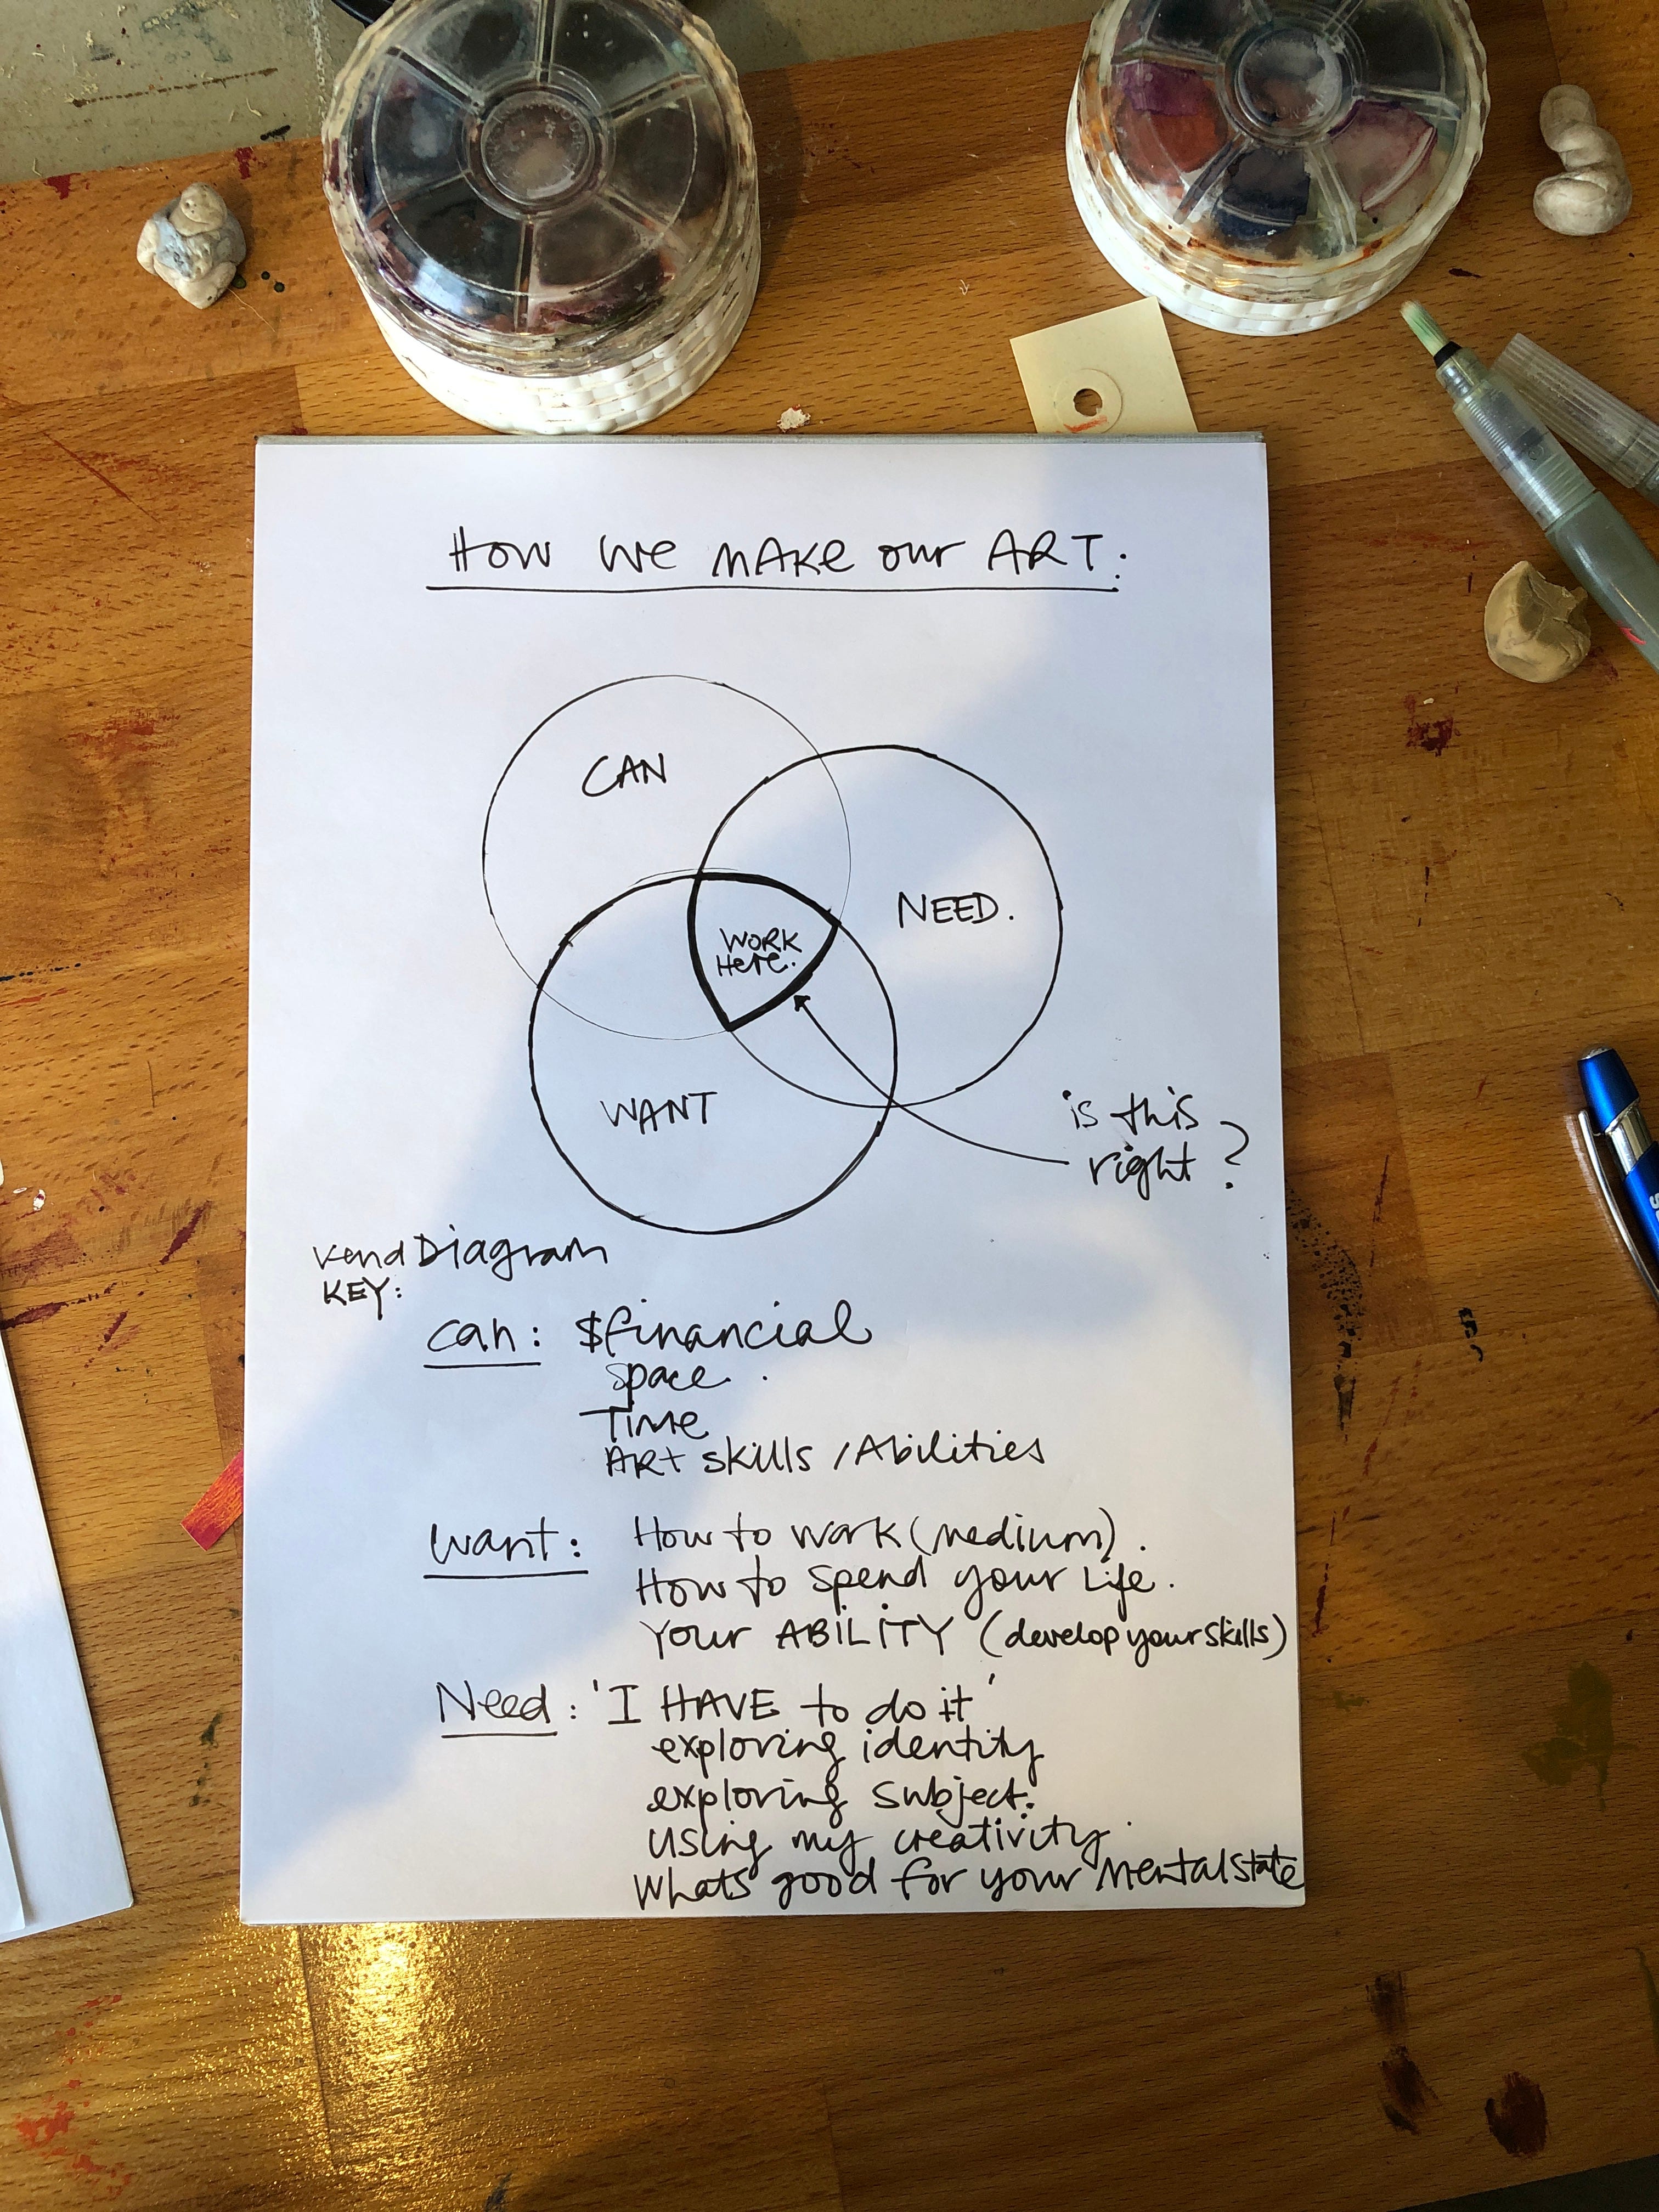 How we make our ART:
CAN
NEED.
WORK
Here.
WANT
is this
right?
Vend Diagram
KEY:
can: $financial
space.
Time
ART skills / Abilities
want: How to work (medium).
How to spend your Life.
Your ABILITY (develop your skills)
Need: 'I HAVE to do it'
exploring identity
exploring subject.
using my creativity.
Whats good for your Mental state